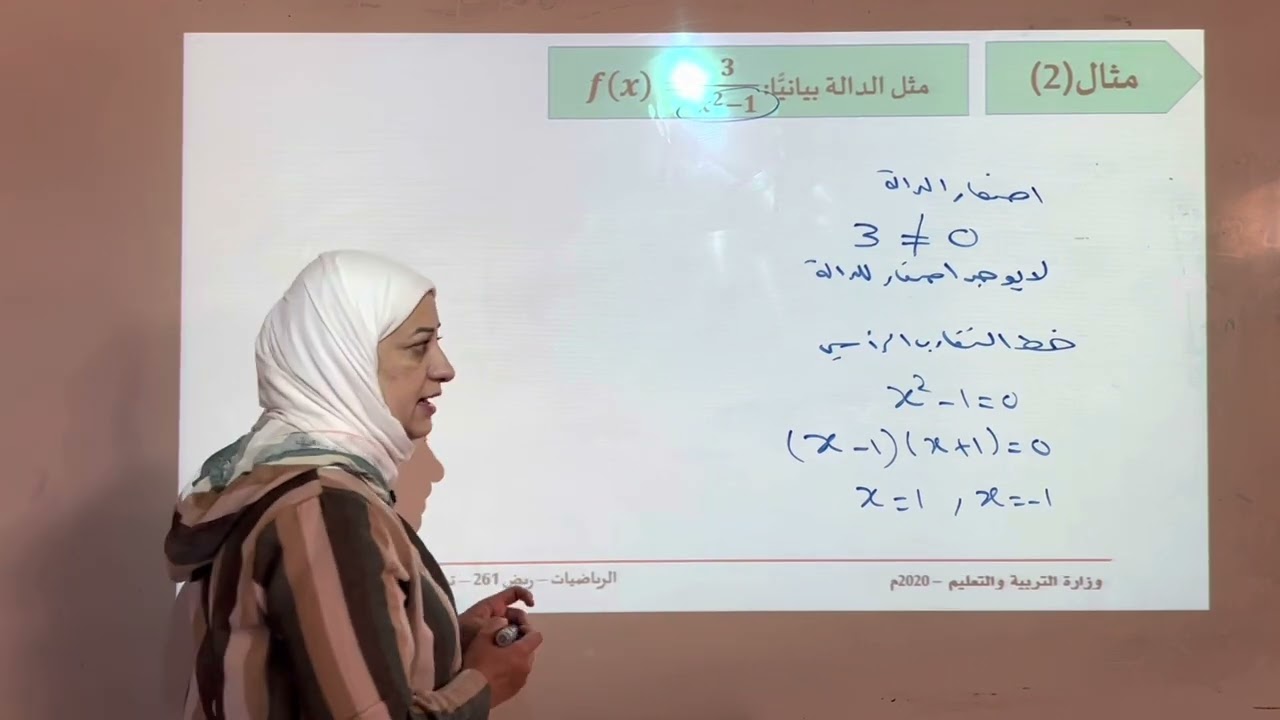 مثال(2)
مثل الدالة بيانيًّا: f(x) 3/x²−1
اصفار الدالة
3 ≠ 0
لا يوجد اصفار للدالة
خط التقارب الرأسي
x² − 1 = 0
(x − 1)(x + 1) = 0
x = 1 , x = −1
وزارة التربية والتعليم – 2020م
الرياضيات – ريض 261 –